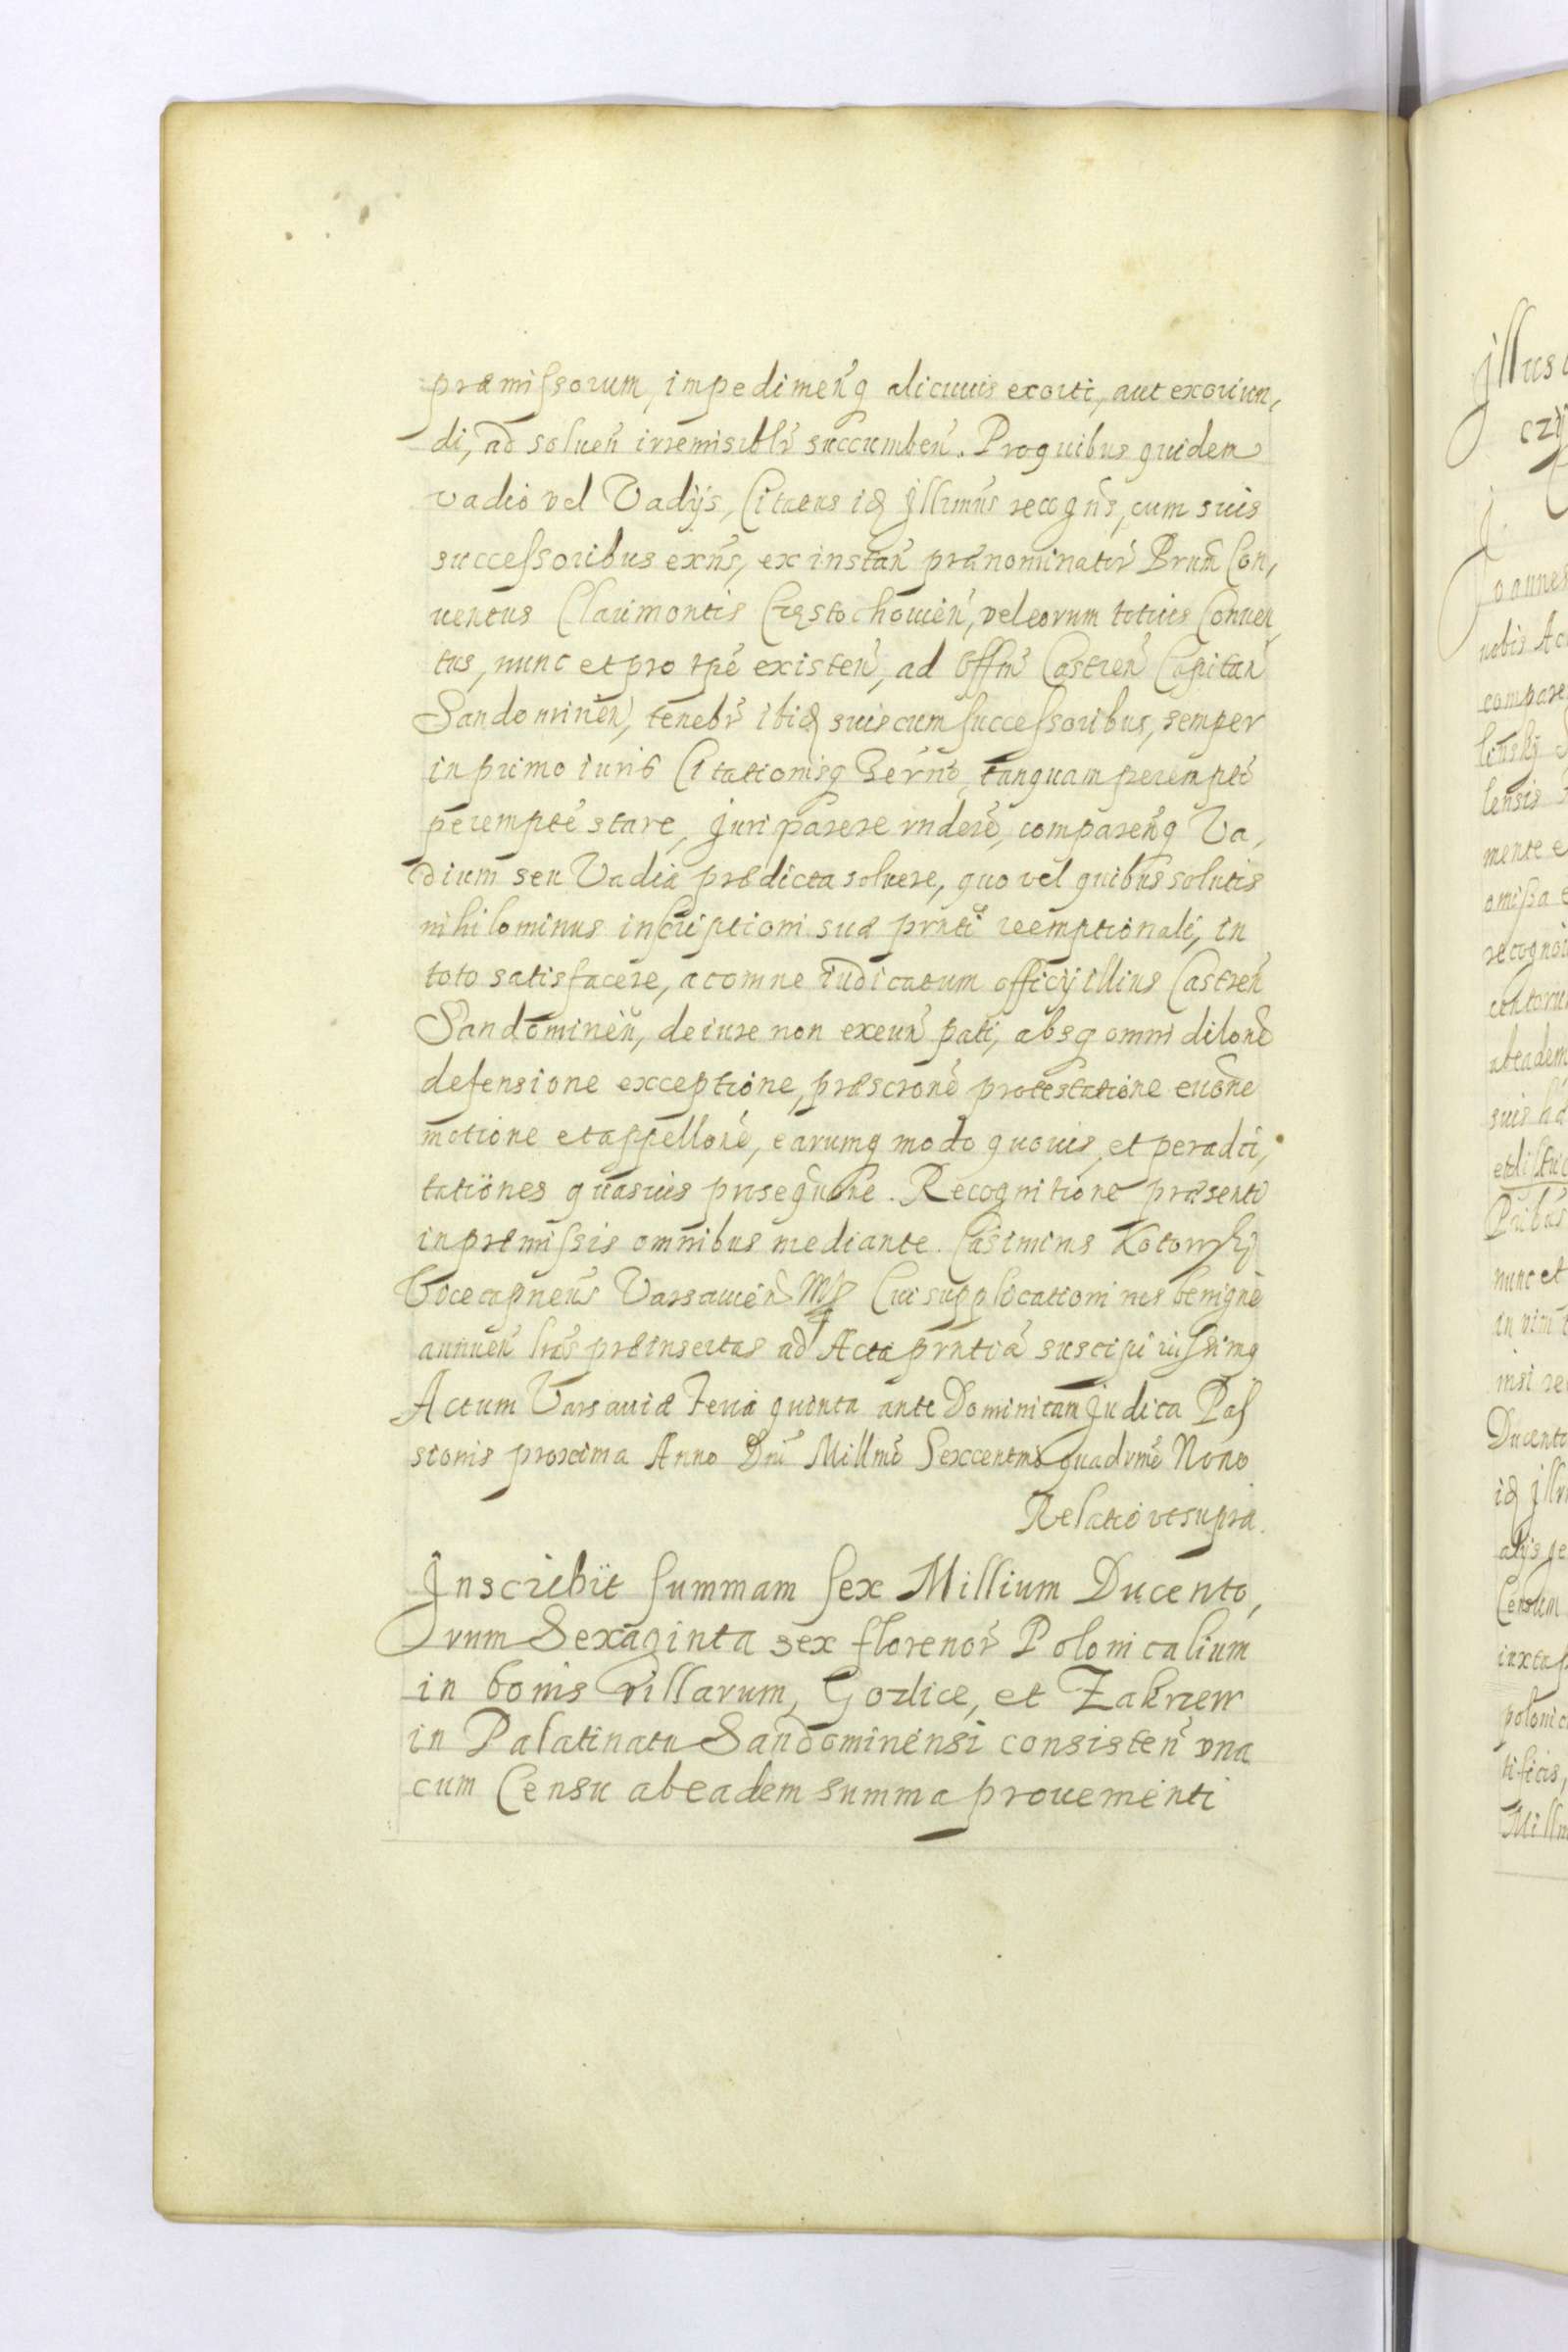 præmissorum, impedimen̄q alicuius exorti, aut exoriun,
di, ad soluen̄ irremisiblr̄ succumben̄. Pro quibus quidem
vadio vel Vadijs, Citatus idq Jllrmūs recogn̄s, cum suis
successoribus exn̄s, ex instan̄ prænominator̄ Prum̄ Con,
uentus Clarimontis Częstochouien̄, vel eorum totius Conuen,
tus, nunc et pro tpē existen̄, ad Offm̄ Castren̄ Capitan̄
Sandomirien̄, tenebr̄ ibiq suis cum successoribus, semper
in primo iuris Citationisq Termō, tanquam perempto
peremptē stare, Juri parere rndere, comparen̄q Va,
dium seu Vadia prædicta soluere, quo vel quibus solutis
nihilominus inscriptioni suæ prnti reemptionali, in
toto satisfacere, ac omne iudicatum officij illius Castren̄
Sandomirien̄, de iure non exeun̄ pati, absq omni dilonē
defensione exceptione, præscronē protestatione euōne
motione et appellonē, earumq modo quouis, et per adci,
tationes quasuis prosequōne. Recognitione præsenti
in præmissis omnibus mediante. Casimirus Kotowski
Vicecapneus Varsauien̄ Mp Cui supplicationi nos benignè
annuen̄ lras præinsertas ad Acta prntia suscipi iussimq
Actum Varsauiæ Feria quinta ante Dominicam Judica Pas
sionis proxima Anno Dni Millmō Sexcentmō quadrmō Nono
Relatio vt supra.
Jnscribit summam sex Millium Ducento,
rum Sexaginta sex florenor̄ Polonicalium
in bonis villarum, Gozlice, et Zakrzew
in Palatinatu Sandomirensi consisten̄ vna
cum Censu ab eadem summa proueinienti
Jllus
czij
Joannes
nobis Ac
compare
mente e
omissa e
recognoi
ab eadem
suis
nunc et
Ducento
idq Jllr
alijs
Censum
iuxta
polonic
Millm